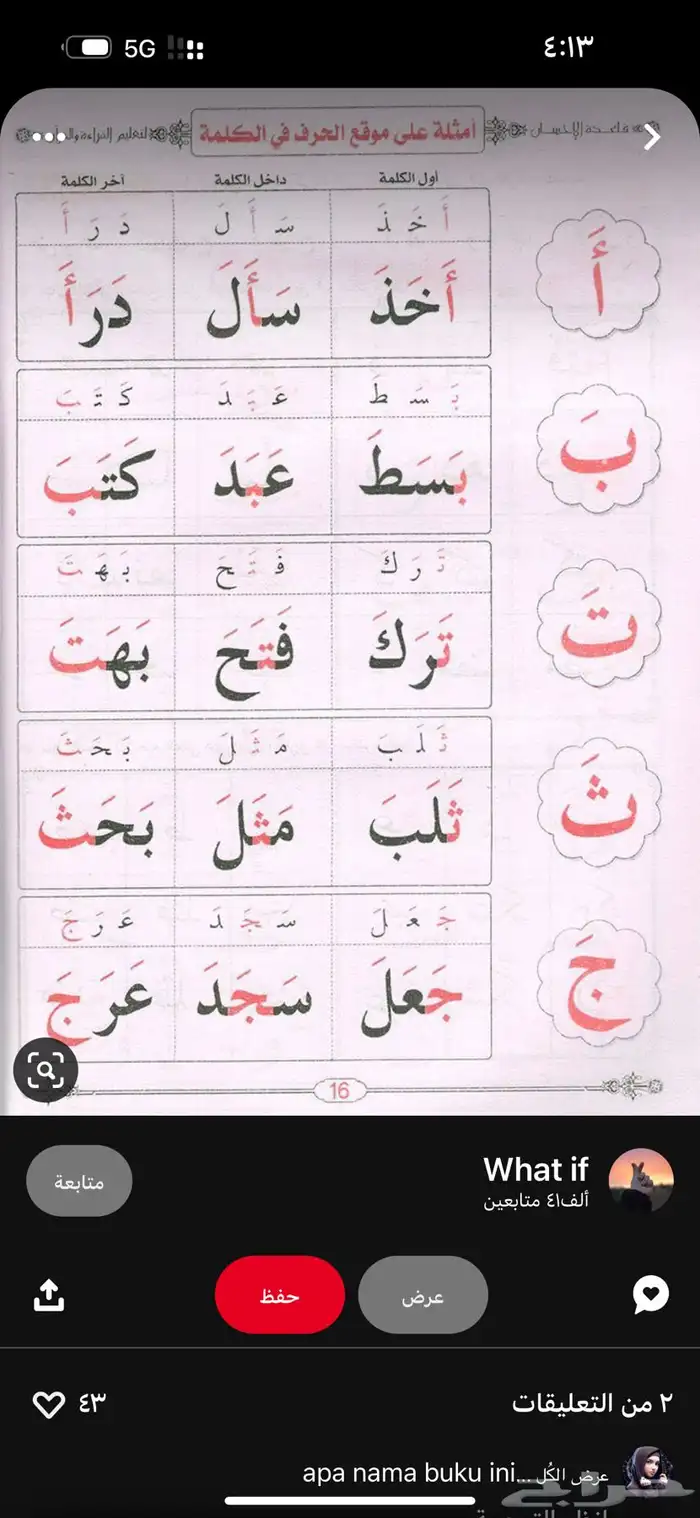 5G ٤:١٣
قاعدة الإحسان أمثلة على موقع الحرف في الكلمة لتعليم القراءة
أول الكلمة داخل الكلمة آخر الكلمة
أَ خَ ذَ سَ أَ لَ دَ رَ أَ
أَ أَخَذَ سَأَلَ دَرَأَ
بَ سَ طَ عَ بَ دَ كَ تَ بَ
بَ بَسَطَ عَبَدَ كَتَبَ
تَ رَ كَ فَ تَ حَ بَ هَ تَ
تَ تَرَكَ فَتَحَ بَهَتَ
ثَ لَ بَ مَ ثَ لَ بَ حَ ثَ
ثَ ثَلَبَ مَثَلَ بَحَثَ
جَ عَ لَ سَ جَ دَ عَ رَ جَ
جَ جَعَلَ سَجَدَ عَرَجَ
16
What if
متابعة
٤١ألف متابعين
عرض حفظ
٢ من التعليقات ٤٣
apa nama buku ini... عرض الكُل